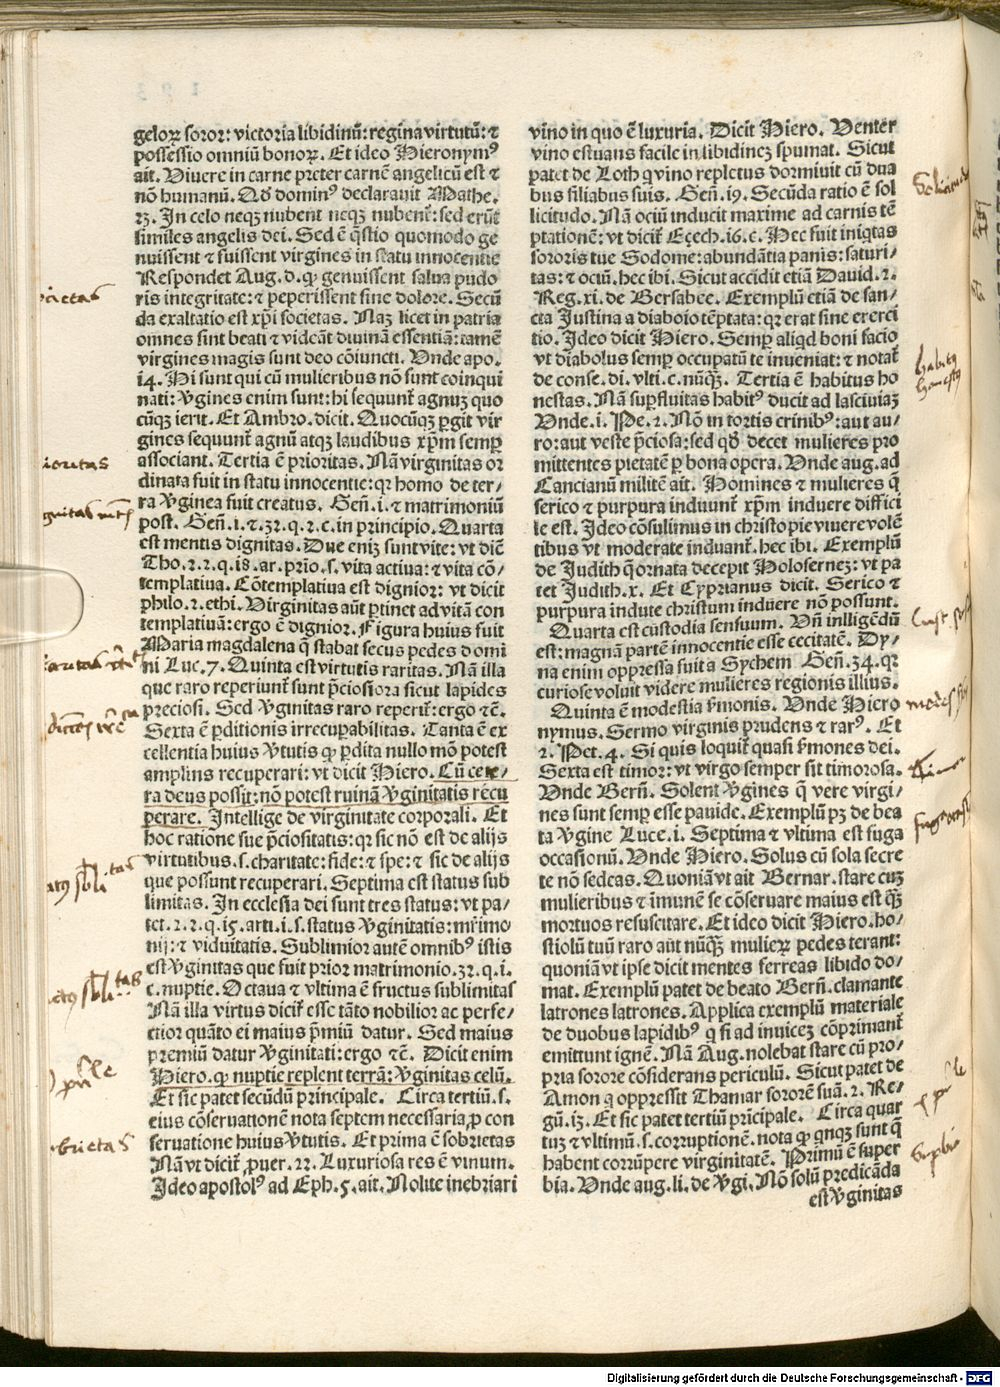 geloꝝ soror: victoria libidinū: regina virtutū: ⁊
possessio omniū bonoꝝ. Et ideo Hieronymꝰ
ait. Viuere in carne preter carnē angelicū est ⁊
nō humanū. Qd̄ dominꝰ declarauit Mathe.
23. In celo neqꝫ nubent neqꝫ nubent̄: sed erūt
similes angelis dei. Sed ē q̄stio quomodo ge
nuissent ⁊ fuissent virgines in statu innocentie
Respondet Aug. d. ꝙ genuissent salua pudo
ris integritate: ⁊ peperissent sine dolore. Secū
da exaltatio est xp̄i societas. Naꝫ licet in patria
omnes sint beati ⁊ videāt diuinā essentiā: tamē
virgines magis sunt deo cōiuncti. Vnde apo.
14. Hi sunt qui cū mulieribus nō sunt coinqui
nati: v̄gines enim sunt: hi sequunt̄ agnuꝫ quo
cūqꝫ ierit. Et Ambro. dicit. Quocūqꝫ ꝑgit vir
gines sequunt̄ agnū atqꝫ laudibus xp̄m semꝑ
associant. Tertia ē prioritas. Nā virginitas or
dinata fuit in statu innocentie: qꝛ homo de ter/
ra v̄ginea fuit creatus. Geñ. i. ⁊ matrimoniū
post. Geñ. i. ⁊. 32. q. 2. c. in principio. Quarta
est mentis dignitas. Due eniꝫ sunt vite: vt dič
Tho. 2. 2. q. 18. ar. prio. s. vita actiua: ⁊ vita cō/
templatiua. Cōtemplatiua est dignior: vt dicit
philo. 2. ethi. Virginitas aūt ꝑtinet ad vitā con
templatiuā: ergo ē dignior. Figura huius fuit
Maria magdalena q̄ stabat secus pedes domi
ni Luc. 7. Quinta est virtutis raritas. Nā illa
que raro reperiunt̄ sunt p̄ciosiora sicut lapides
preciosi. Sed v̄ginitas raro reperit̄: ergo ⁊c̄.
Sexta ē ꝑditionis irrecuꝑabilitas. Tanta ē ex
cellentia huius v̄tutis ꝙ ꝑdita nullo mō potest
amplius recuperari: vt dicit Hiero. Cū cete/
ra deus possit: nō potest ruinā v̄ginitatis recu
perare. Intellige de virginitate corporali. Et
hoc ratione sue p̄ciositatis: qꝛ sic nō est de alijs
virtutibus. s. charitate: fide: ⁊ spe: ⁊ sic de alijs
que possunt recuperari. Septima est status sub
limitas. In ecclesia dei sunt tres status: vt pa/
tet. 2. 2. q. 15. arti. i. s. status v̄ginitatis: mr̄imo
nij: ⁊ viduitatis. Sublimior autē omnibꝰ istis
est v̄ginitas que fuit prior matrimonio. 32. q. i.
c. nuptie. Octaua ⁊ vltima ē fructus sublimitas
Nā illa virtus dicit̄ esse tāto nobilior ac perfe/
ctior quāto ei maius p̄miū datur. Sed maius
premiū datur v̄ginitati: ergo ⁊c̄. Dicit enim
Hiero. ꝙ nuptie replent terrā: v̄ginitas celū.
Et sic patet secūdū principale. Circa tertiū. s.
eius cōseruationē nota septem necessaria ꝓ con
seruatione huius v̄tutis. Et prima ē sobrietas
Nā vt dicit̄ ꝓuer. 22. Luxuriosa res ē vinum.
Ideo apostolꝰ ad Eph. 5. ait. Nolite inebriari
vino in quo ē luxuria. Dicit Hiero. Venter
vino estuans facile in libidineꝫ spumat. Sicut
patet de Loth q vino repletus dormiuit cū dua
bus filiabus suis. Geñ. 19. Secūda ratio ē sol
licitudo. Nā ociū inducit maxime ad carnis tē
ptationē: vt dicit̄ Eçech. 16. c. Hec fuit iniqtas
sororis tue Sodome: abundātia panis: saturi/
tas: ⁊ ociū. hec ibi. Sicut accidit etiā Dauid. 2.
Reg. xi. de Bersabee. Exemplū etiā de san/
cta Iustina a diabolo tēptata: qꝛ erat sine exerci
tio. Ideo dicit Hiero. Semꝑ aliqd boni facio
vt diabolus semꝑ occupatū te inueniat: ⁊ notat̄
de conse. di. vlti. c. nūqꝫ. Tertia ē habitus ho
nestas. Nā suꝑfluitas habitꝰ ducit ad lasciuiaꝫ
Vnde. i. Pe. 2. Nō in tortis crinibꝰ: aut au/
ro: aut veste p̄ciosa: sed qd̄ decet mulieres pro
mittentes pietatē ꝑ bona opera. Vnde aug. ad
Cancianū militē ait. Homines ⁊ mulieres q̄
serico ⁊ purpura induunt̄ xp̄m induere diffici
le est. Ideo cōsulimus in christo pie viuere volē
tibus vt moderate induant̄. hec ibi. Exemplū
de Judith q̄ ornata decepit Holoferneꝫ: vt pa
tet Judith. x. Et Cyprianus dicit. Serico ⁊
purpura indute christum induere nō possunt.
Quarta est custodia sensuum. Vñ inlligēdū
est: magnā partē innocentie esse cecitatē. Dy/
na enim oppressa fuit a Sychem Geñ. 34. qꝛ
curiose voluit videre mulieres regionis illius.
Quinta ē modestia s̄monis. Vnde Hiero
nymus. Sermo virginis prudens ⁊ rarꝰ. Et
2. Pet. 4. Si quis loquit̄ quasi s̄mones dei.
Sexta est timor: vt virgo semper sit timorosa.
Vnde Berñ. Solent v̄gines q̄ vere virgi/
nes sunt semꝑ esse pauide. Exemplū pꝫ de bea
ta v̄gine Luce. i. Septima ⁊ vltima est fuga
occasionū. Vnde Hiero. Solus cū sola secre
te nō sedeas. Quoniā vt ait Bernar. stare cuꝫ
mulieribus ⁊ imunē se cōseruare maius est qꝫ
mortuos resuscitare. Et ideo dicit Hiero. ho/
stiolū tuū raro aūt nūqꝫ mulieꝝ pedes terant:
quoniā vt ipse dicit mentes ferreas libido do/
mat. Exemplū patet de beato Berñ. clamante
latrones latrones. Applica exemplū materiale
de duobus lapidibꝰ q si ad inuiceꝫ cōprimant̄
emittunt ignē. Nā Aug. nolebat stare cū pro/
pria sorore cōsiderans periculū. Sicut patet de
Amon q oppressit Thamar sororē suā. 2. Re/
gū. 13. Et sic patet tertiū prīcipale. Circa quar
tuꝫ ⁊ vltimū. s. corruptionē. nota ꝙ qnqꝫ sunt q̄
habent corrūpere virginitatē. Primū ē super
bia. Vnde aug. li. de v̄gi. Nō solū predicāda
est v̄ginitas
Solicitudo
habitꝰ
honestꝰ
timor
Supbia
Digitalisierung gefördert durch die Deutsche Forschungsgemeinschaft - DFG